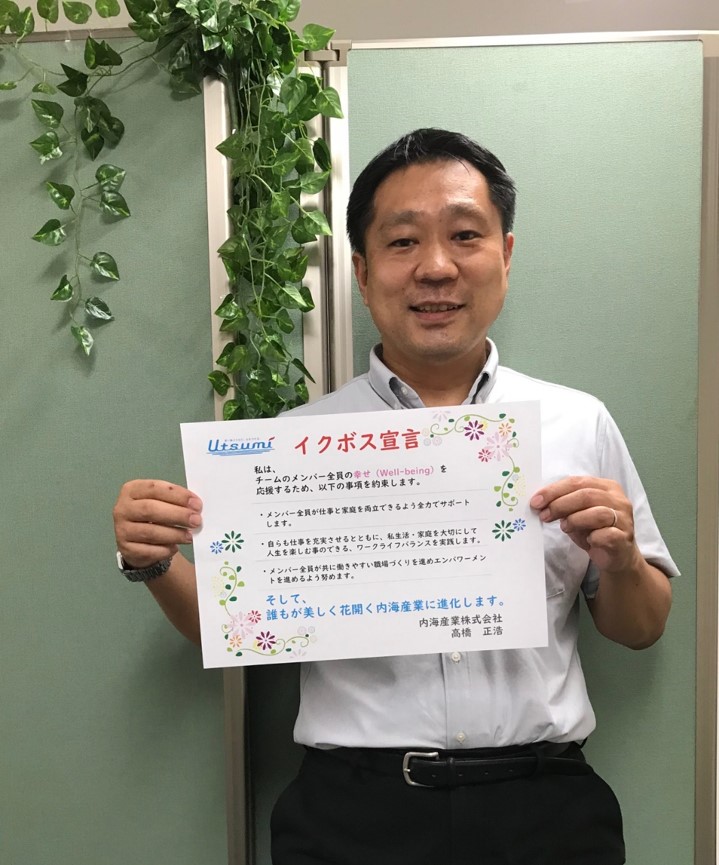 Utsumi イクボス宣言
私は、
チームのメンバー全員の幸せ（Well-being）を
応援するため、以下の事項を約束します。
・メンバー全員が仕事と家庭を両立できるよう全力でサポート
します。
・自らも仕事を充実させるとともに、私生活・家庭を大切にして
人生を楽しむ事のできる、ワークライフバランスを実践します。
・メンバー全員が共に働きやすい職場づくりを進めエンパワーメン
トを進めるよう努めます。
そして、
誰もが美しく花開く内海産業に進化します。
内海産業株式会社
高橋　正浩